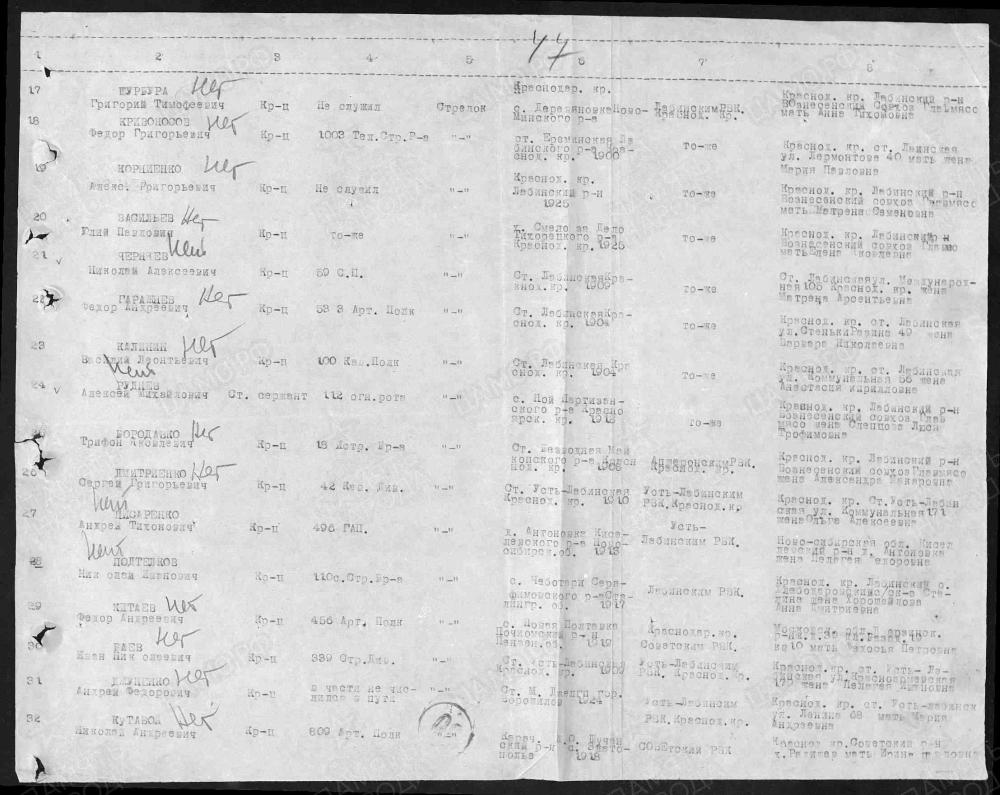 47
1 2 3 4 5 6 7 8
17 ШУРБУРА Нет
Григорий Тимофеевич Кр-ц Не служил Стрелок
Краснодар. кр.
с. Деревяновка Ново-
Минского р-а
Лабинским РВК.
Краснод. кр.
Краснод. кр. Лабинский р-н
Вознесенский Совхоз Главмясо
мать Анна Тихомовна
18 КРИВОНОСОВ Нет
Федор Григорьевич Кр-ц 1003 Тех.Стр.Р-а "-"
ст. Ереминская Ла
бинского р-а Кра-
снод. кр. 1900
то-же
Краснод. кр. ст. Лаинская
ул. Лермонтова 40 мать жена
Мария Павловна
19 КОРНИЕНКО Нет
Алекс. Григорьевич Кр-ц Не служил "-"
Краснод. кр.
Лабинский р-н
1925
то-же
Краснод. кр. Лабинский р-н
Вознесенский совхоз Главмясо
мать Матрена Семеновна
20 ВАСИЛЬЕВ Нет
Юлий Павлович Кр-ц то-же "-"
х. Смелое Дело
Тихорецкого р-а
Краснод. кр. 1925
то-же
Краснод. кр. Лабинский р-н
Вознесенский совхоз Главмю
мать Елена Яковлевна
21 v ЧЕРНЯЕВ Нет
Николай Алексеевич Кр-ц 59 С.П. "-"
Ст. Лабинская Кра-
снод. кр. 1909
то-же
Ст. Лабинская ул. Междунарох-
ная 105 Краснод. кр. жена
Матрена Арсентьевна
22 ГАРАЩИЕВ Нет
Федор Андреевич Кр-ц 53 3 Арт. Полк "-"
Ст. Лабинская Кра-
снод. кр. 1904
то-же
Краснод. кр. ст. Лабинская
ул. Стеньки Разина 49 жена
Варвара Николаевна
23 КАЛИНИН Нет
Василий Леонтьевич Кр-ц 100 Кав. Полк "-"
Ст. Лабинская Кра
снод. кр. 1904
то-же
Краснод. кр. ст. Лабинская
ул. Коммунальная 56 жена
Анастасия Кирилловна
24 v РУДНЕВ Нет
Алексей Михайлович Ст. сержант 112 огн.рота "-"
с. Пой Партизан-
ского р-а Красно
ярск. кр. 1918
то-же
Краснод. кр. Лабинский р-н
Вознесенский совхоз Глав
мясо жена Слепцова Люся
Трофимовна
25 БОРОДАВКО Нет
Трифон Яковлевич Кр-ц 18 Истр. Бр-а "-"
Ст. Безводная Май
копского р-а Красн
нод. кр. 1905
Апшеронским РВК.
Краснод. кр.
Краснод. кр. Лабинский р-н
Вознесенский совхоз Главмясо
жена Александра Макаровна
26 ДМИТРИЕНКО Нет
Сергей Григорьевич Кр-ц 42 Кав. Див. "-"
Ст. Усть-Лабинская
Краснод. кр. 1910
Усть-Лабинским
РВК. Краснод. кр
Краснод. кр. Ст. Усть-Лабин
ская ул. Коммунальная 171
жена Ольга Алексеевна
27 ПИСАРЕНКО Нет
Андрей Тихонович Кр-ц 496 ГАП. "-"
х. Антоновка Кисе-
левского р-а Ново-
сибирск. об. 1913
Усть-
Лабинским РВК.
Ново-сибирская обл. Кисел
левский р-н х. Антоновка
жена Пелагея Федоровна
28 ПОДТЕЛКОВ Нет
Николай Иванович Кр-ц 110с.Стр.Бр-а "-"
с. Чеботари Сера-
фимовского р-а Ста-
лингр. об. 1917
Лабинским РВК.
Краснод. кр. Лабинский с.
жена Хорошайлова
Анна Дмитриевна
29 КИТАЕВ Нет
Федор Андреевич Кр-ц 456 Арт. Полк "-"
с. Новая Полтавка
р-н
Пензен. об. 1919
Краснодар. кр.
Советским РВК.
Московск. об.
кв 10 мать Федосья Петровна
30 БАЕВ Нет
Иван Николаевич Кр-ц 339 Стр. Див. "-"
Ст. Усть-Лабинская
Краснод. кр. 1907
Усть-Лабинским
РВК. Краснод. кр.
Краснод. кр. ст. Усть- Ла-
бинская ул. Красноармейская
жена Пелагея Ивановна
31 Нет
Андрей Федорович Кр-ц в части не чис-
лился в пути "-"
Ст. М. гор.
Ворошилов 1924
Усть-Лабинсим
РВК. Краснод. кр.
Краснод. кр. ст. Усть-Лабинск
ул. Ленина 68 мать Мария
Андреевна
32 КУТАВОЙ Нет
Николай Андреевич Кр-ц 809 Арт. Полк "-"
1918
Советский РВК
Краснод. кр. Советский р-н